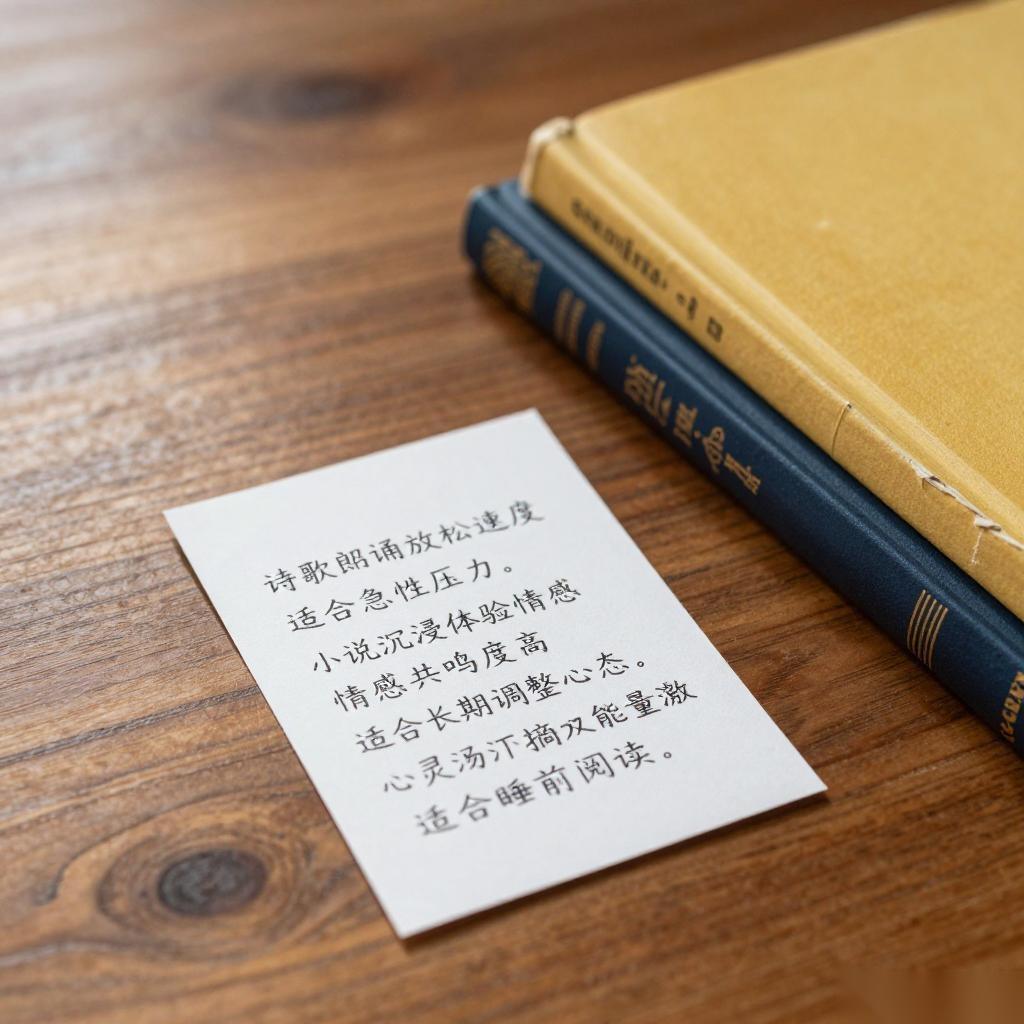 诗歌朗诵放松速度
适合急性压力。
小说沉浸体验情感
情感共鸣度高
适合长期调整心态。
心灵汤汴摘双能量激
适合睡前阅读。